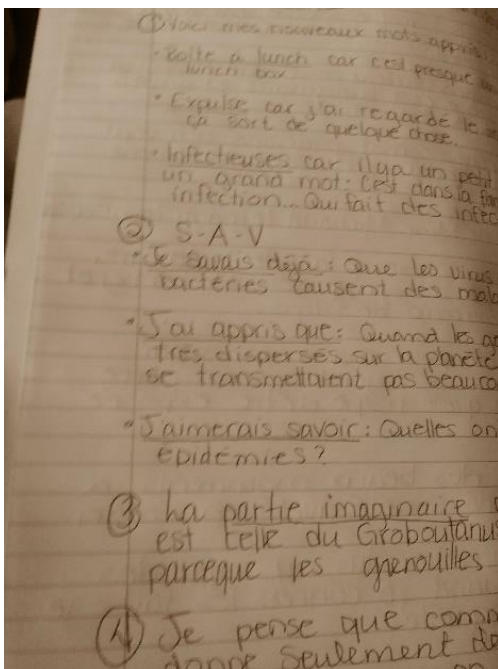 ① Voici mes nouveaux mots appris:
• Boîte à lunch car c'est presque
lunch box
• Expulse car j'ai regardé le
ça sort de quelque chose.
• Infectieuses car il y a un petit
un grand mot: c'est dans la
infection... Qui fait des infec
② S-A-V
• Je savais déjà: Que les virus
bactéries causent des mala
• J'ai appris que: Quand les
très dispersés sur la planète
se transmettaient pas beauco
• J'aimerais savoir: Quelles on
épidémies?
③ La partie imaginaire
est celle du Groboutanu
parceque les grenouilles
④ Je pense que comm
donne seulement de